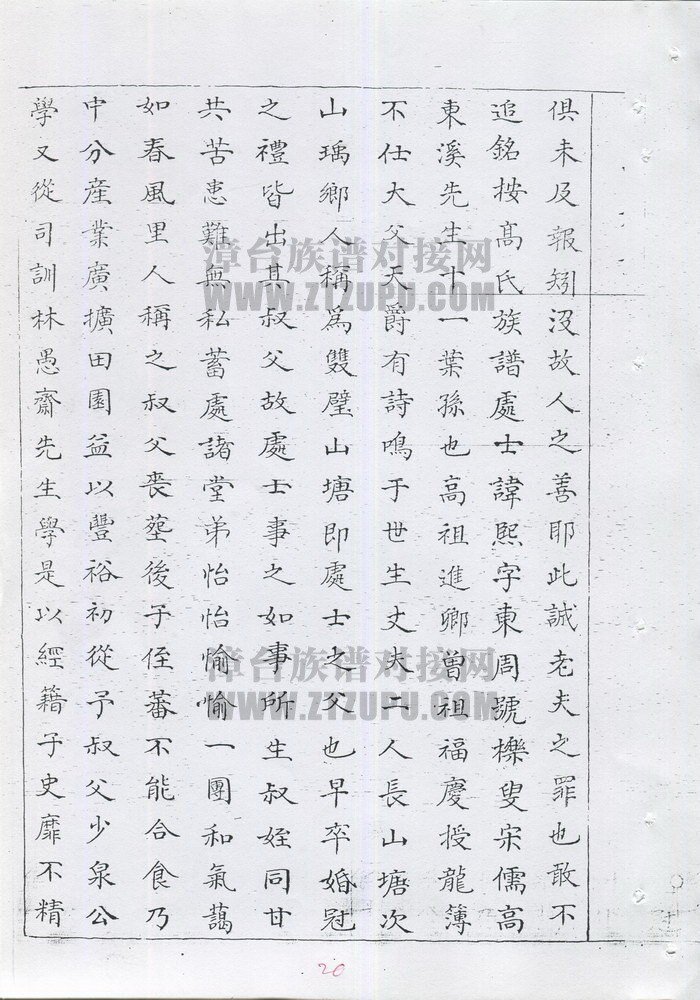 俱未及報矧沒故人之善耶此誠老夫之罪也敢不
追銘按高氏族譜處士諱熙字東周號櫟叟宋儒高
東溪先生十一葉孫也高祖進卿曾祖福慶授龍簿
不仕大父天爵有詩鳴于世生丈夫二人長山塘次
山瑀鄉人稱為雙璧山塘即處士之父也早卒婚冠
之禮皆出其叔父故處士事之如事所生叔姪同甘
共苦患難無私蓄處諸堂弟怡怡愉愉一團和氣藹
如春風里人稱之叔父喪塟後子侄蕃不能合食乃
中分産業廣擴田園益以豐裕初從予叔父少泉公
學又從司訓林愚齋先生學是以經籍子史靡不精
漳台族谱对接网
WWW.ZTZUPU.COM
漳台族谱对接网
WWW.ZTZUPU.COM
20